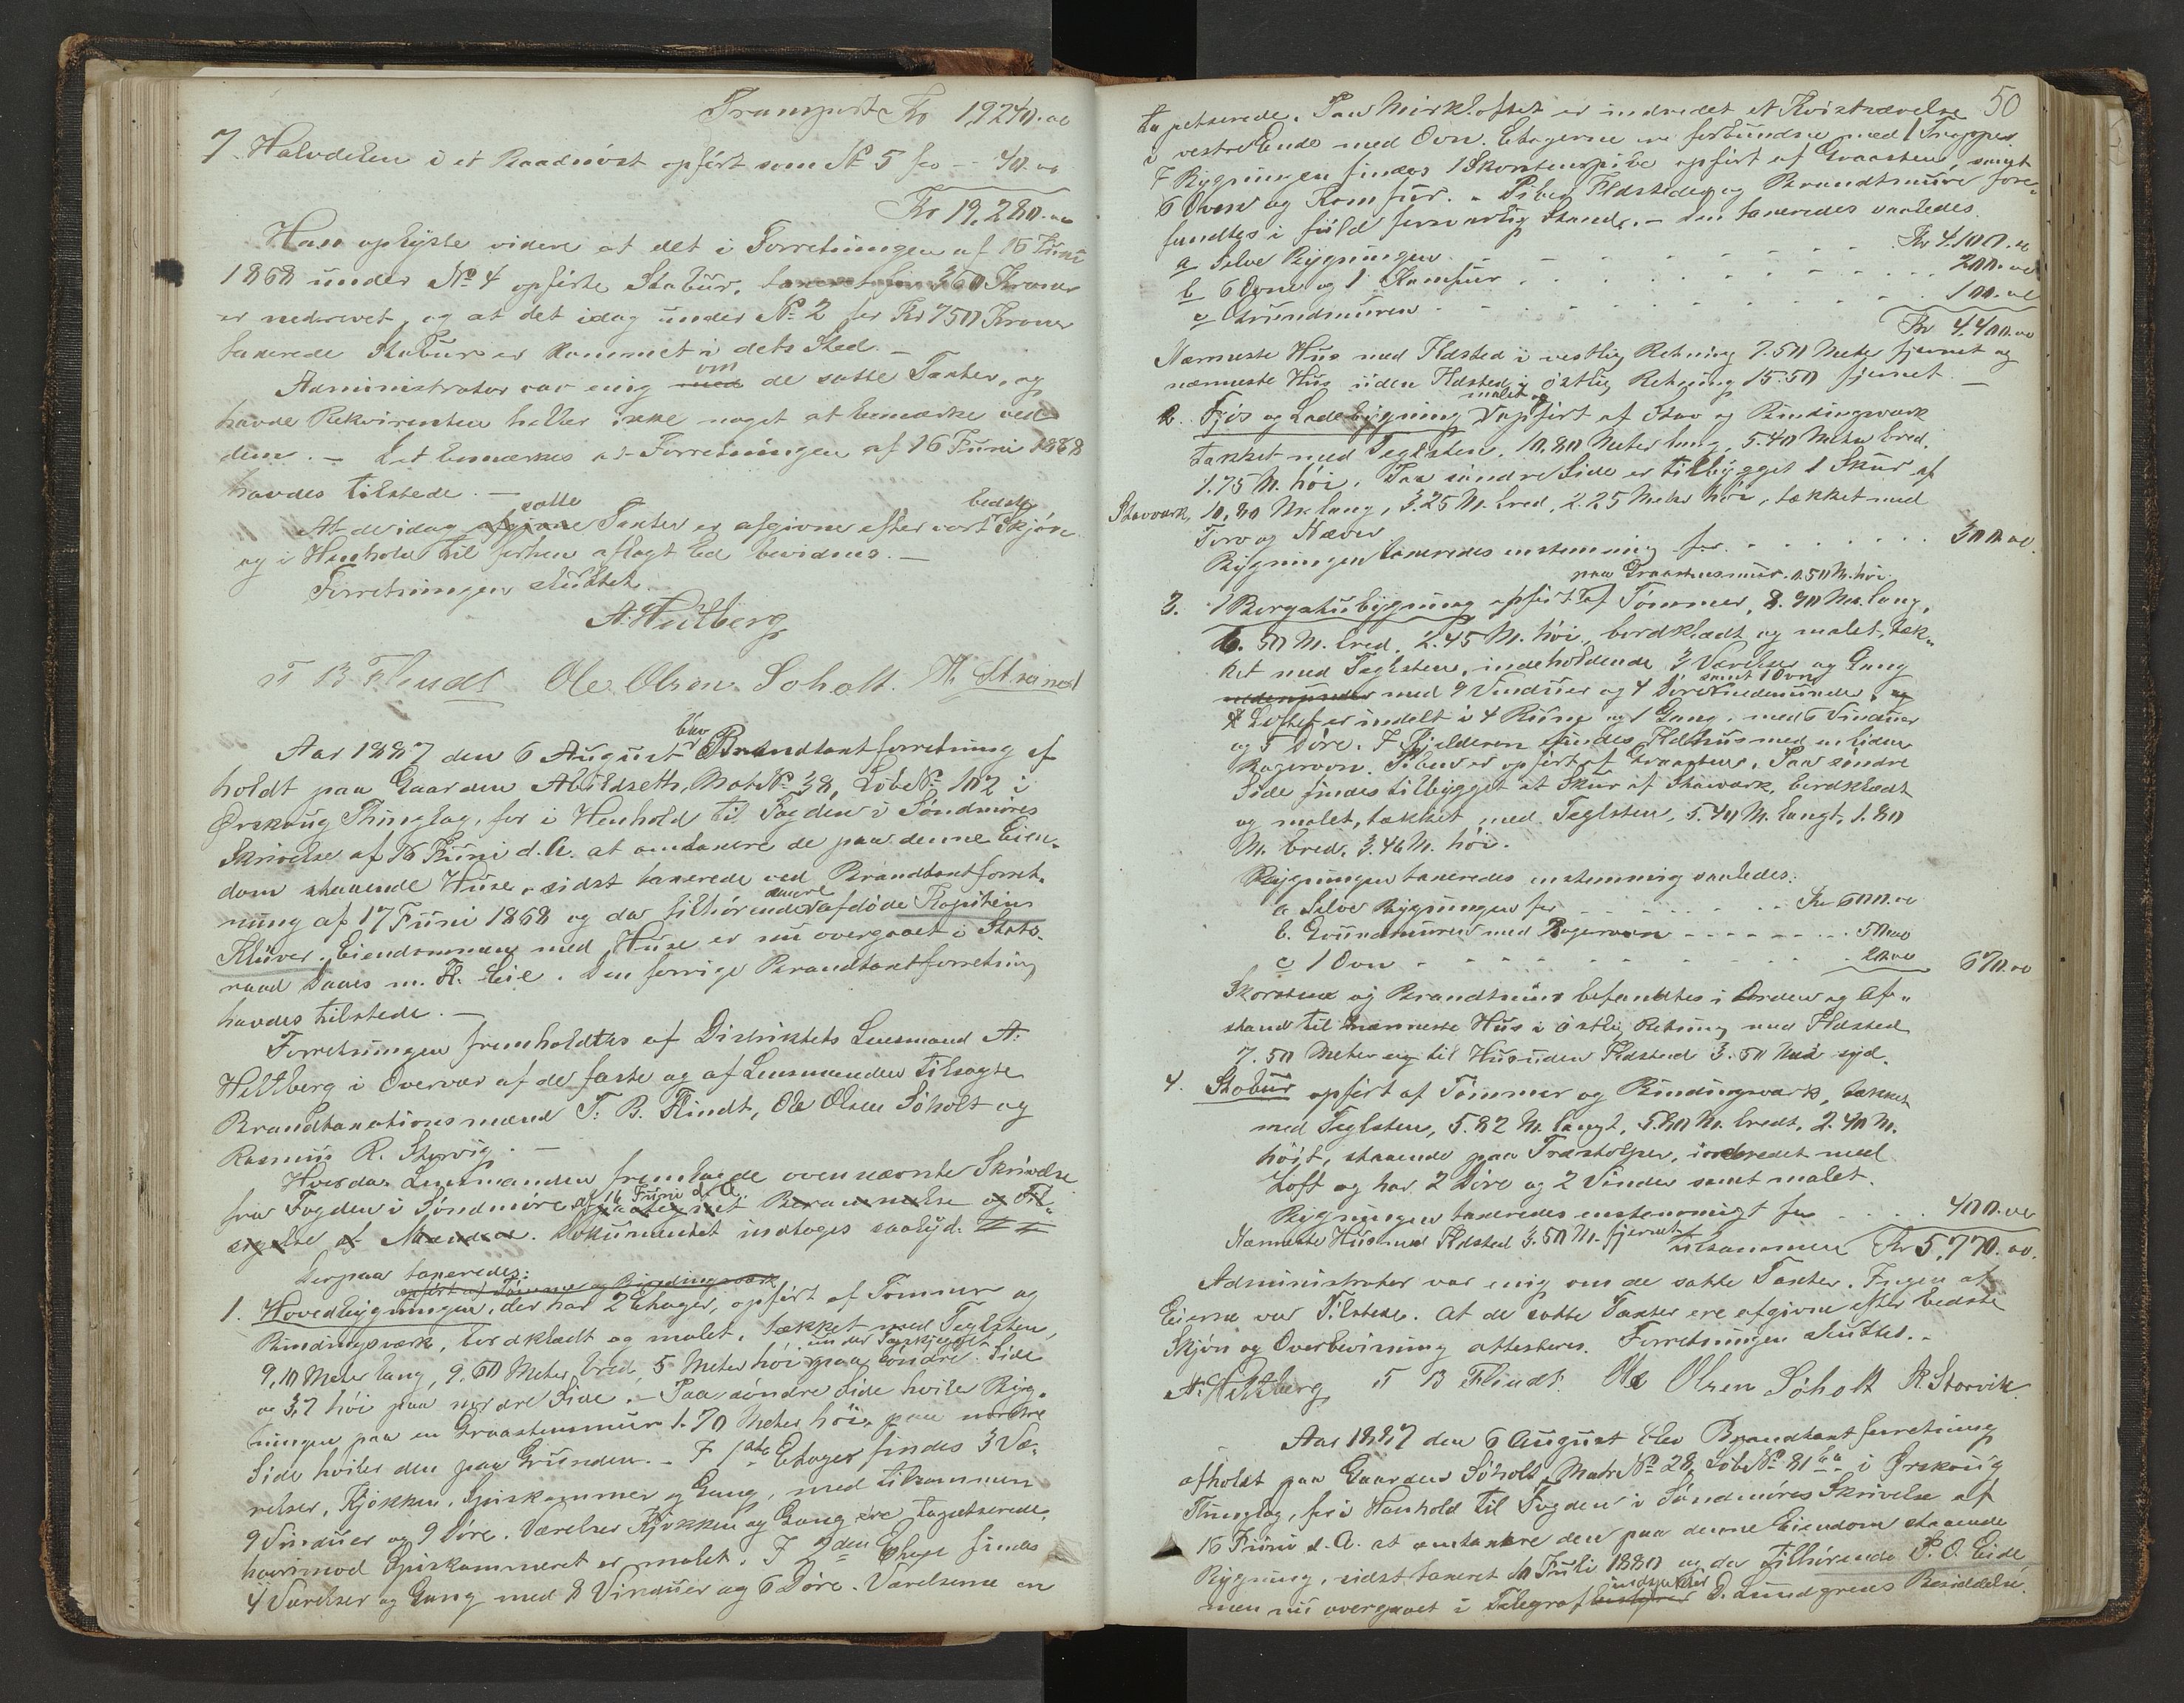 Transport Kr 19240.00
7. Halvdelen i et Baadnøst opført som No 5 for -- 40.00
Kr 19,280.00
Han oplyste videre at det i Forretningen af 16 Juni
1868 under No 4 opførte Stabur, 360 Kroner
er nedrevet, og at det idag under No 2 for Kr 750 Kroner
taxerede Stabur er kommet i dets Sted. —
Administrator var enig med om de satte Taxter, og
havde Rekvirenten heller ikke noget at bemærke ved
dem. — Det bemærkes at Forretningen af 16 Juni 1868
havdes tilstede. —
At de idag afgivne satte Taxter er afgivne efter vort bedste Skjøn
og i Henhold til forhen aflagt Ed bevidnes. —
Forretningen sluttet
A. Heltberg
T B Flindt Ole Olsen Søholt. H. Strand
Aar 1887 den 6 August blev Brandtaxtforretning af
holdt paa Gaarden Abildseth, Mat No 38, Løbe No 102 i
Ørskoug Thinglag, for i Henhold til Fogden i Søndmøres
Skrivelse af 16 Juni d. A. at omtaxere de paa denne Eien„
dom staaende Huse, sidst taxerede ved Brandtaxtforret„
ning af 17 Juni 1868 og da tilhørende nu afdøde Kapitein
Klüver. Eiendommen med Huse er nu overgaaet i Stats„
raad Daaes m. Fl. Eie. Den forrige Brandtaxtforretning
havdes tilstede. —
Forretningen fremholdtes af Distriktets Lensmand A.
Heltberg i Overvær af de faste og af Lensmanden tilsagte
Brandtaxationsmænd T. B. Flindt, Ole Olsen Søholt og
Rasmus R. Storvig. —
Hvorda Lensmanden fremlagde ovennævnte Skrivelse
fra Fogden i Søndmøre af 16 Juni d. A. paategnet Beramnelse og Til„
sigelse af Mændene. Dokumentet indtages saalyd.
Derpaa taxeredes:
opført af Tømmer og Bindingsværk
1. Hovedbygningen, der har 2 Etager, opført af Tømmer og
Bindingsværk, bordklædt og malet, tækket med Teglsten,
9,10 Meter lang, 9.60 Meter bred, 5 Meter høi under Tagskjægget paa søndre Side
og 3,7 høi paa nordre Side. — Paa søndre Side hviler Byg„
ningen paa en Graastensmur 1.70 Meter høi, paa nordre
Side hviler den paa Grunden. — I 1ste Etage findes 3 Væ„
relser, Kjøkken, Spiskammer og Gang, med tilsammen
9 Vinduer og 9 Døre. Værelser Kjøkken og Gang ere tapetserede,
hvorimod Spiskammeret er malet. I 2den Etage findes
4 Værelser og Gang med 8 Vinduer og 6 Døre. Værelserne er
50
tapetserede. Paa Mørkloftet er indredet et Kvistværelse
i vestre Ende med Ovn. Etagerne er forbundne med 1 Trapper.
I Bygningen findes 1 Skorstenspibe opført af Graasten, samt
6 Ovne og Komfur. — Piben Ildsteder og Brandtmure fore„
fandtes i fuld forsvarlig Stand. — Den taxeredes saaledes.
a Selve Bygningen - - - - Kr 4.100.00
b 6 Ovne og 1 Komfur . . . . 200.00
c Grundmuren - - - - 100.00
Kr 4.400.00
Nærmeste Hus med Ildsted i vestlig Retning 7.50 Meter fjernet og
nærmeste Hus uden Ildsted i østlig Retning 15.50 fjernet. —
2. Fjøs og Ladebygning malet og opført af Stav og Bindingsværk
tækket med Teglsten. 10,80 Meter lang, 5.40 Meter bred.
1.75 M. høi. Paa søndre Side er tilbygget 1 Skur af
Stavværk, 10,80 Mr. lang, 3.25 M. bred, 2.25 Meter høi, tækket med
Torv og Næver
Bygningen taxeredes enstemmig for . . . . 300.00
3. 1 Borgstubygning opført paa Graastensmur 1.50 M. høi af Tømmer, 8.90 Mr. lang,
6.50 M. bred, 2.45 M. høi, bordklædt og malet, tæk„
ket med Teglsten, indeholdende 3 Værelser og Gang
nedenunder med 9 Vinduer og 4 Døre samt 1 Ovn nedenunder, og
Loftet er indelt i 4 Rum og 1 Gang, med 6 Vinduer
og 5 Døre. I Kjelderen findes Ildhus med en liden
Bagerovn. Piben er opført af Graasten. Paa søndre
Side findes tilbygget et Skur af Stavværk, bordklædt
og malet, tækket med Teglsten, 5.40 M. langt, 1.80
M. bred, 3.46 M. høi.
Bygningen taxeredes enstemmig saaledes:
a Selve Bygningen for - - - - Kr 600.00
b. Grundmuren med Bagerovn - - - - 50.00
c 1 Ovn - - - - 20.00 670.00
Skorsten og Brandtmur befandtes i Orden og Af„
stand til nærmeste Hus i østlig Retning med Ildsted
7.50 Meter og til Hus uden Ildsted 3.50 Mer syd.
4. Stabur opført af Tømmer og Bindingsværk, tækket
med Teglsten, 5.82 M. langt, 5.80 M. bredt, 2.40 M.
høit, staaende paa Træstolper, indredet med
Loft og har 2 Døre og 2 Vinduer samt malet.
Bygningen taxeredes enstemmigt for . . . . 400.00
Nærmeste Hus med Ildsted 3.50 M. fjernet
tilsammen Kr 5,770.00.
Administrator var enig om de satte Taxter. Ingen af
Eierne var Tilstede. At de satte Taxter ere afgivne efter bedste
Skjøn og Overbevisning attesteres. Forretningen sluttet. —
A. Heltberg T B Flindt. Ole Olsen Søholt R. Storvik
Aar 1887 den 6 August blev Brandtaxtforretning
afholdt paa Gaarden Søholt, Matr No 28, Løbe No 81 i Ørskoug
Thinglag, for i Henhold til Fogden i Søndmøres Skrivelse af
16 Juni d. A. at omtaxere den paa denne Eiendom staaende
Bygning, sidst taxeret 10 Juli 1880 og da tilhørende P. O. Eide
men nu overgaaet i Telegrafbestyrer inspektør D. Lundgreens Besiddelse.